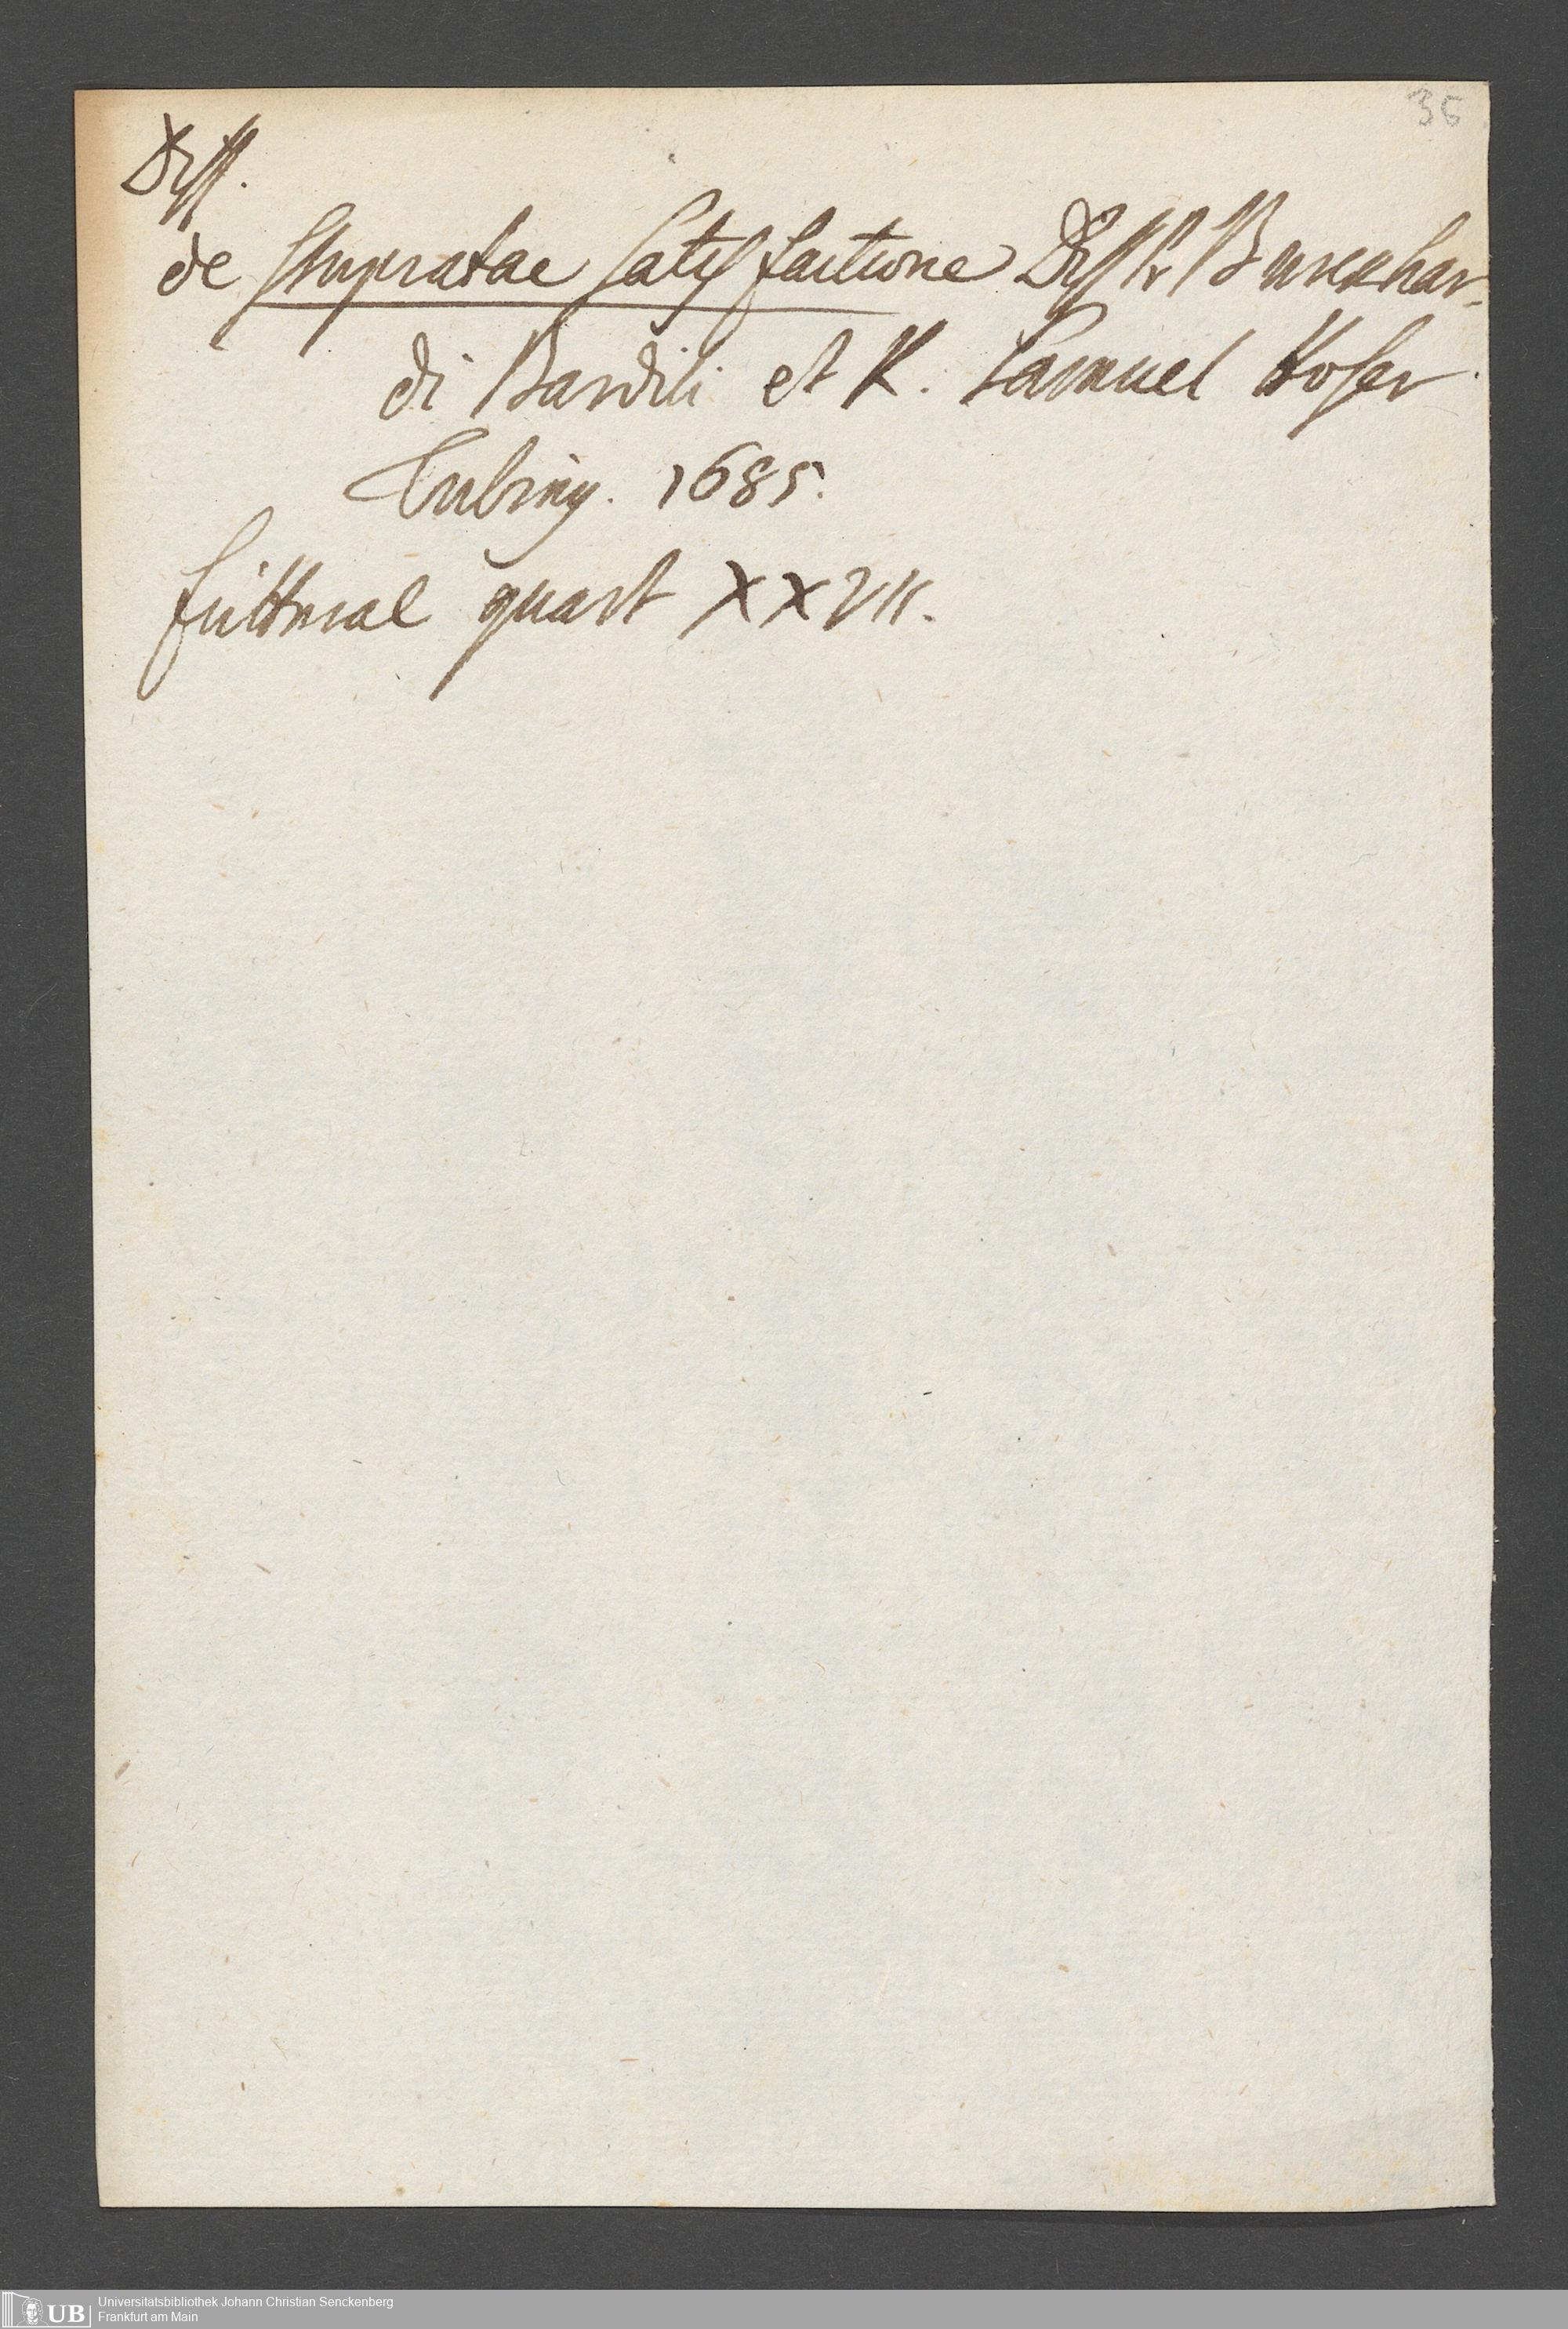 36
Diss.
de Stupratae Satisfactione Diss Pr Burckhar-
di Bardili et R. Samuel Hofer
Tubing. 1685.
futteral quart XXVII.
UB Universitätsbibliothek Johann Christian Senckenberg
Frankfurt am Main